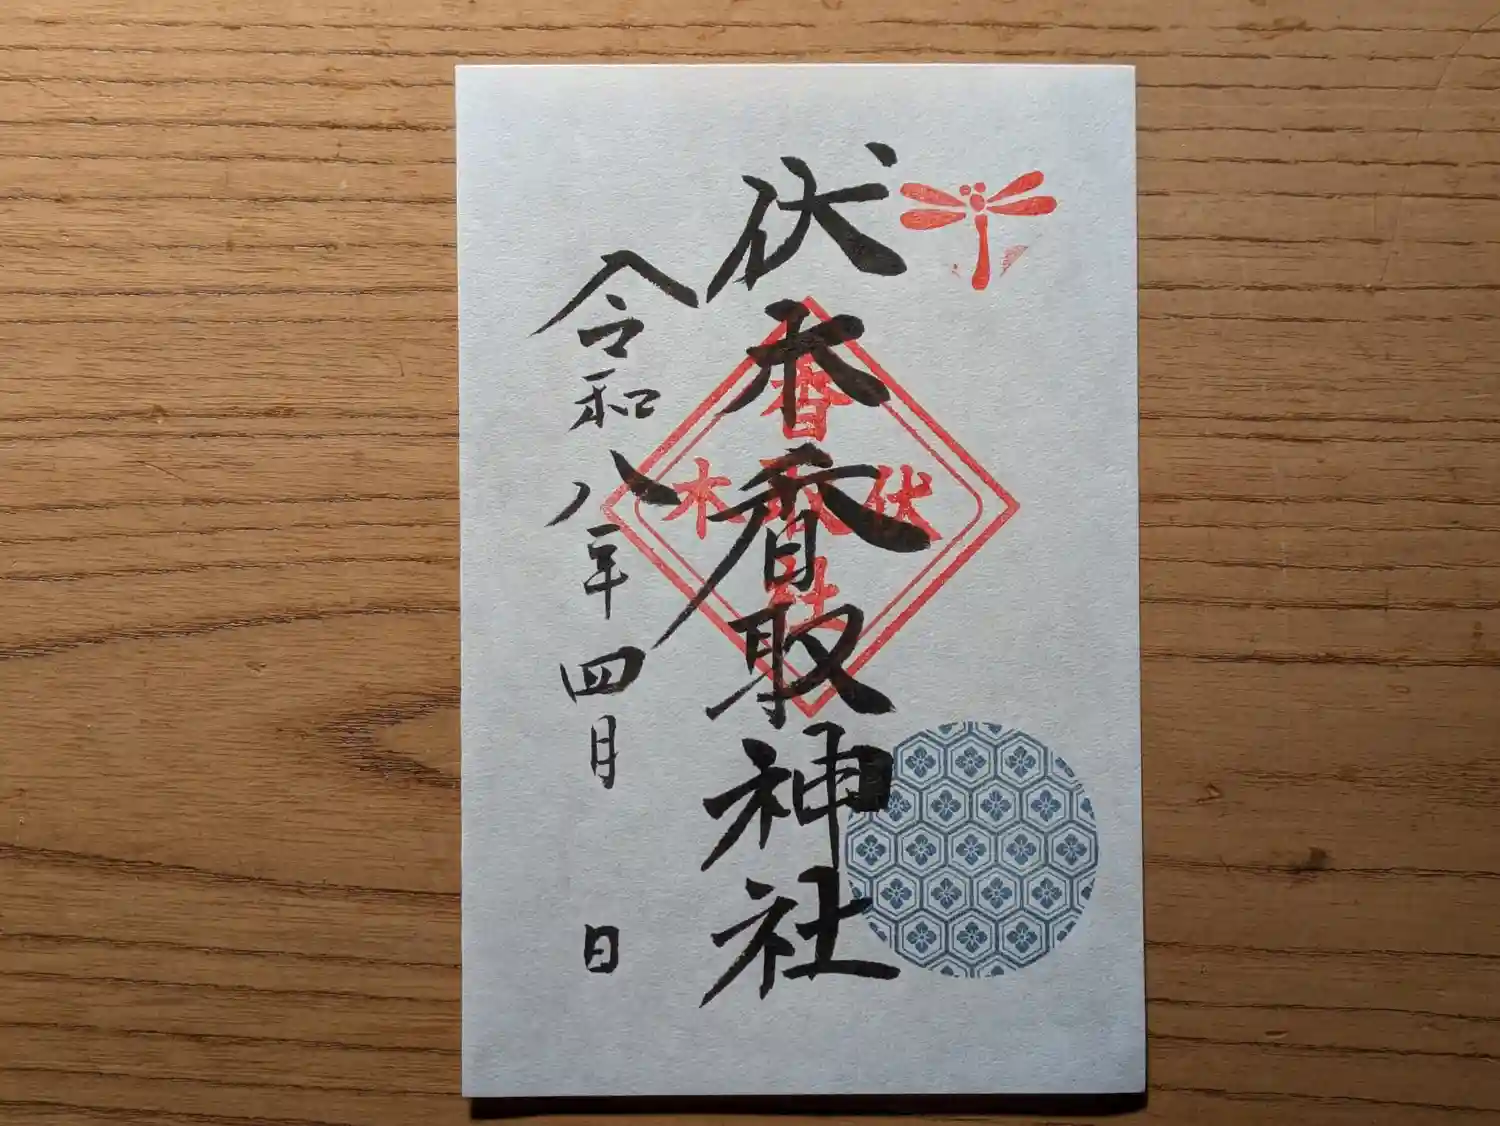 伏木香取神社
令和八年四月 日
香
伏取木
社